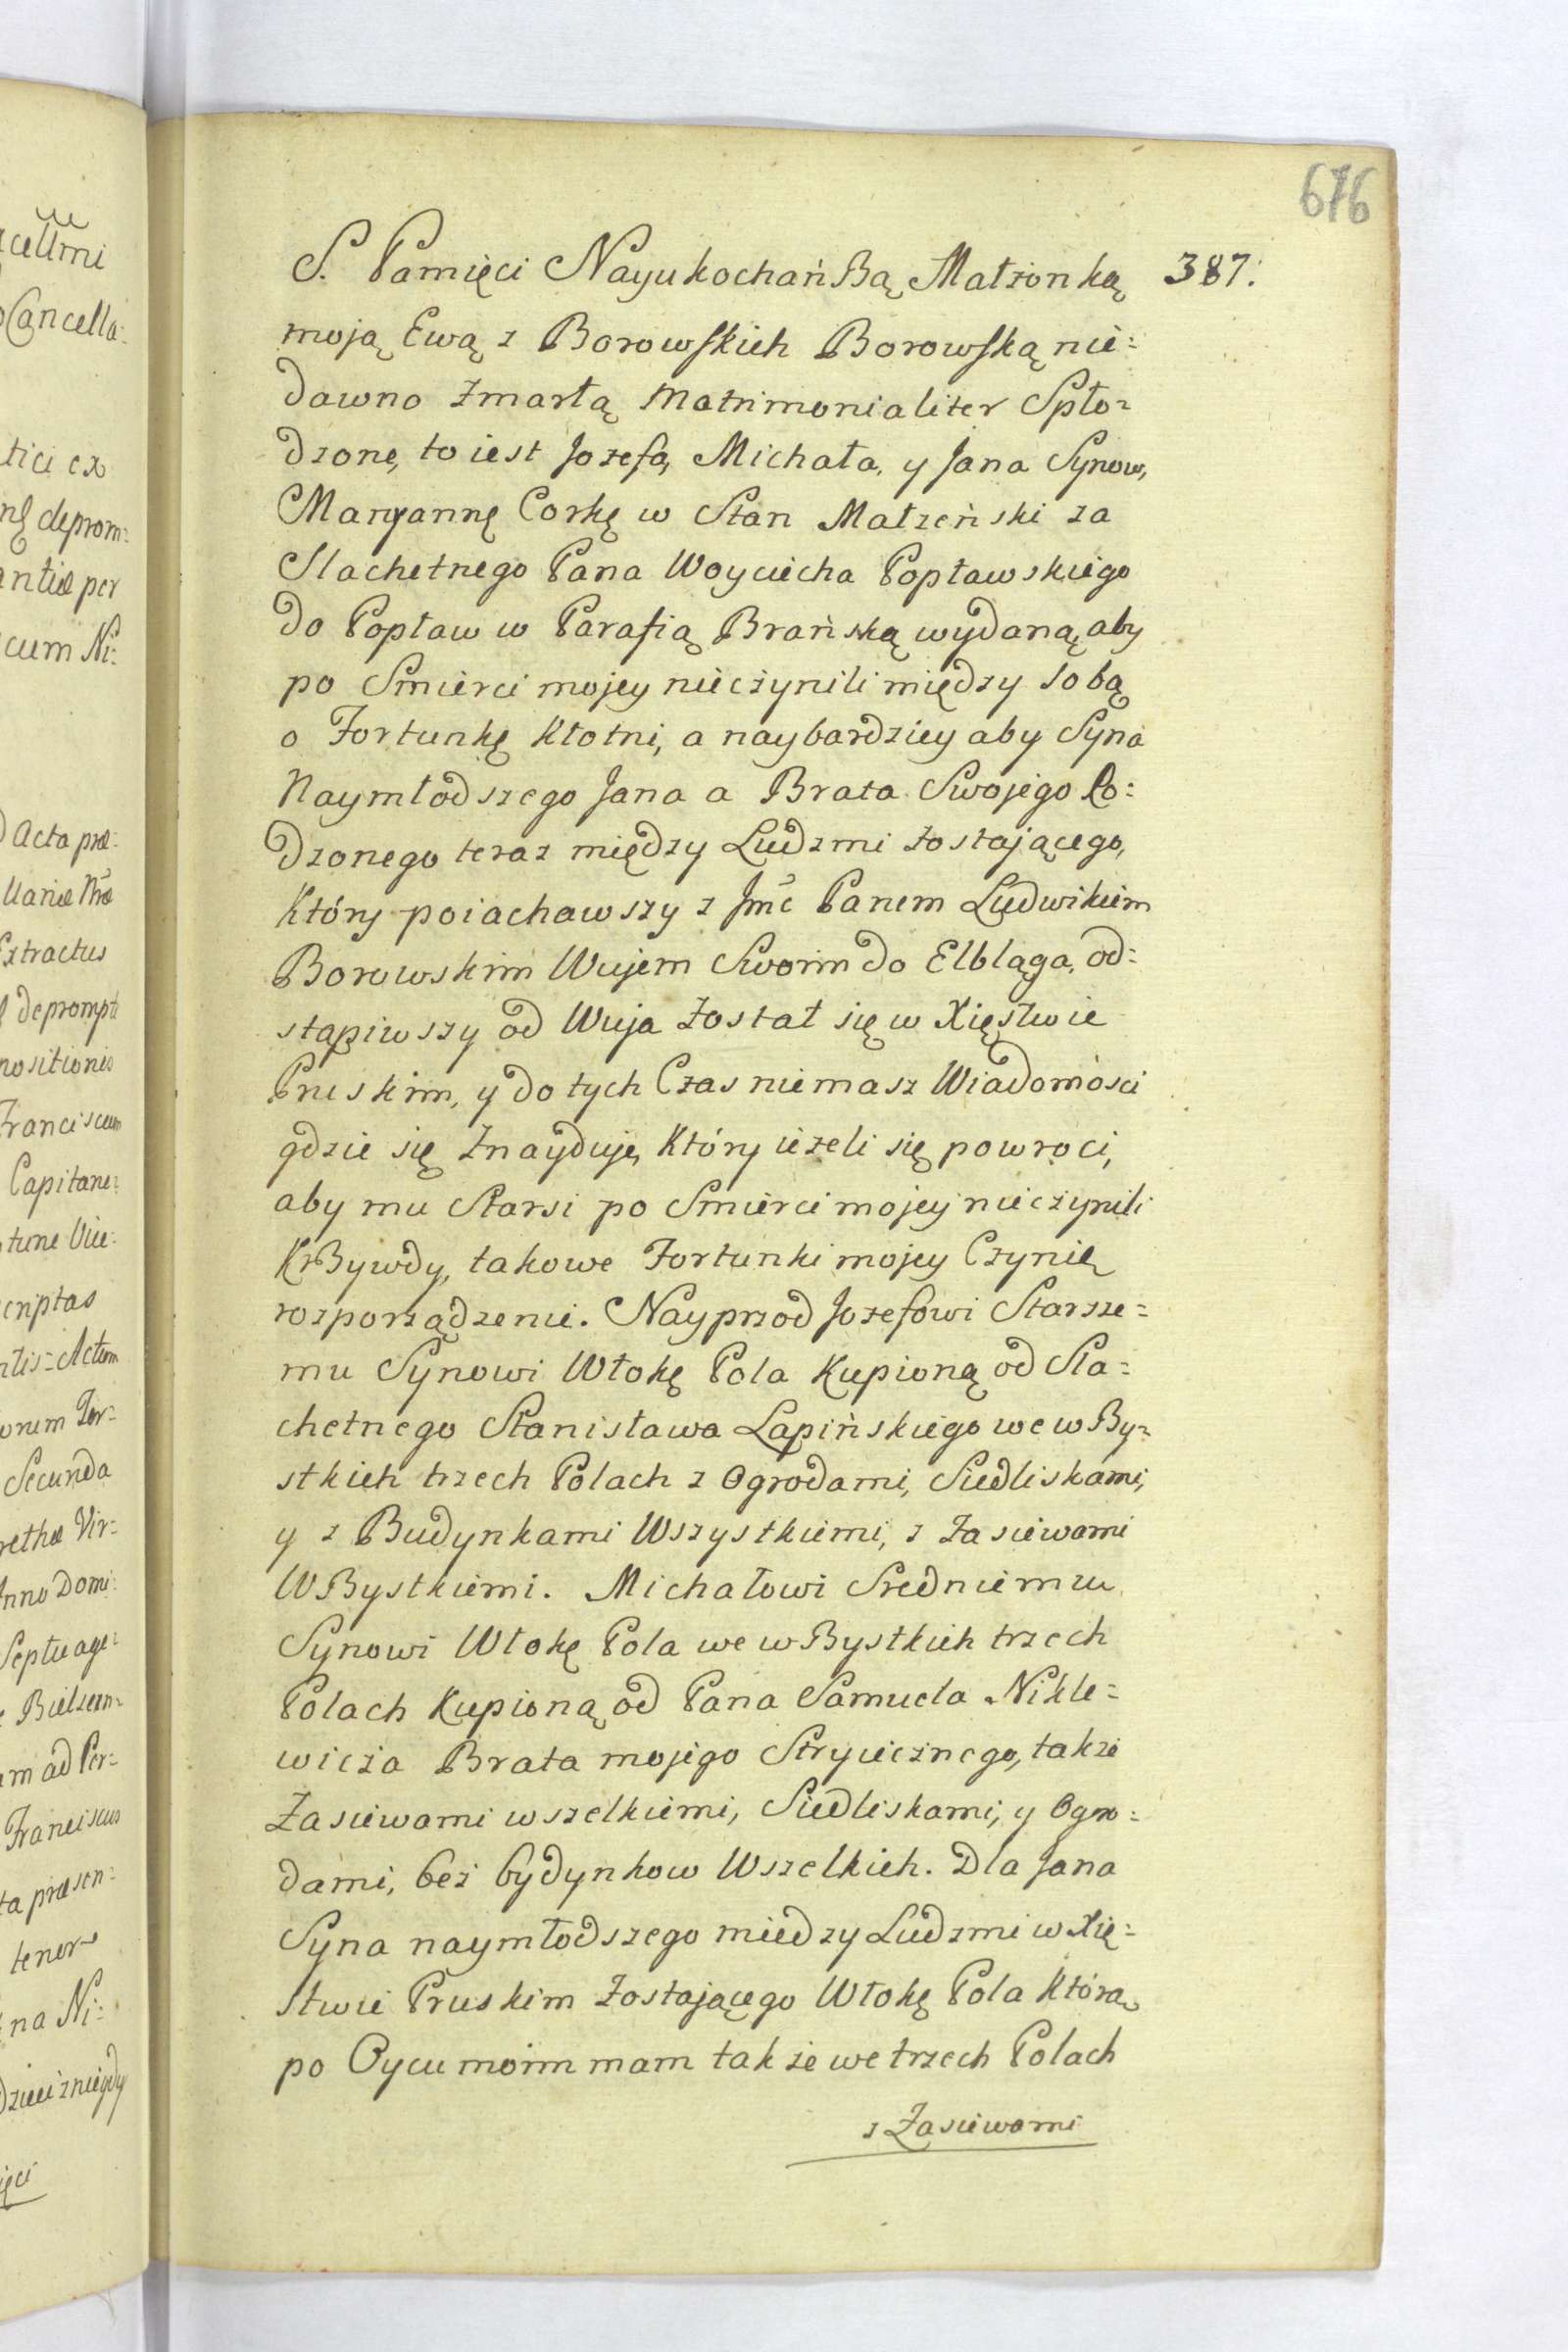 676
S. Pamięci Nayukochańßą Małżonką 387.
moją Ewą z Borowskich Borowską nie:
dawno zmarłą Matrimonialiter Spło=
dzone, to iest Jozefa, Michała, y Jana Synow,
Maryannę Corkę w Stan Małżeński za
Slachetnego Pana Woyciecha Popławskiego
do Popław w Parafią Brańską wydaną, aby
po Smierci mojey nieczynili między sobą
o Fortunkę Kłotni, a naybardziey aby Syna
Naymłodszego Jana a Brata Swojego Ro:
dzonego teraz między Ludzmi zostającego,
Który poiachawszy z Jmć Panem Ludwikiem
Borowskim Wujem Swoim do Elbląga, od:
stąpiwszy od Wuja został się w Xięstwie
Pruskim, y do tych Czas niemasz Wiadomości
gdzie się znayduje, Który ieżeli się powroci,
aby mu Starsi po Smierci mojey nieczynili
Krßywdy, takowe Fortunki mojey Czynię
rozporządzenie. Nayprzod Jozefowi Starsze=
mu Synowi Włokę Pola Kupioną od Sla=
chetnego Stanisława Łapińskiego we wßy=
stkich trzech Polach z Ogrodami, Siedliskami,
y z Budynkami Wszystkiemi, z Zasiewami
Wßystkiemi. Michałowi Sredniemu
Synowi Włokę Pola we wßystkich trzech
Polach Kupioną od Pana Samuela Nikle=
wicza Brata mojego Stryiecznego, także
Zasiewami wszelkiemi, Siedliskami, y Ogro=
dami, bez bydynkow Wszelkich. Dla Jana
Syna naymłodszego miedzy Ludzmi w Xię=
stwie Pruskim zostającego Włokę Pola Którą
po Oycu moim mam także we trzech Polach
z Zasiewami